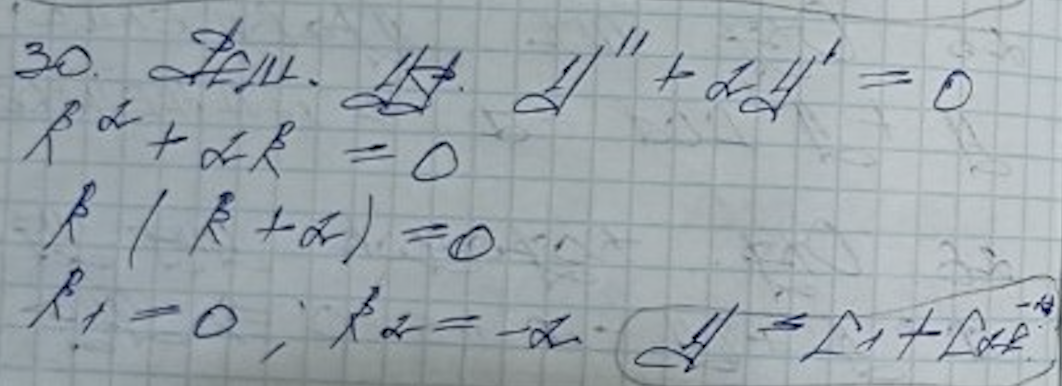 30. Реш. ДУ. y'' + 2y' = 0
k² + 2k = 0
k (k + 2) = 0
k₁ = 0 ; k₂ = -2. y = C₁ + C₂e